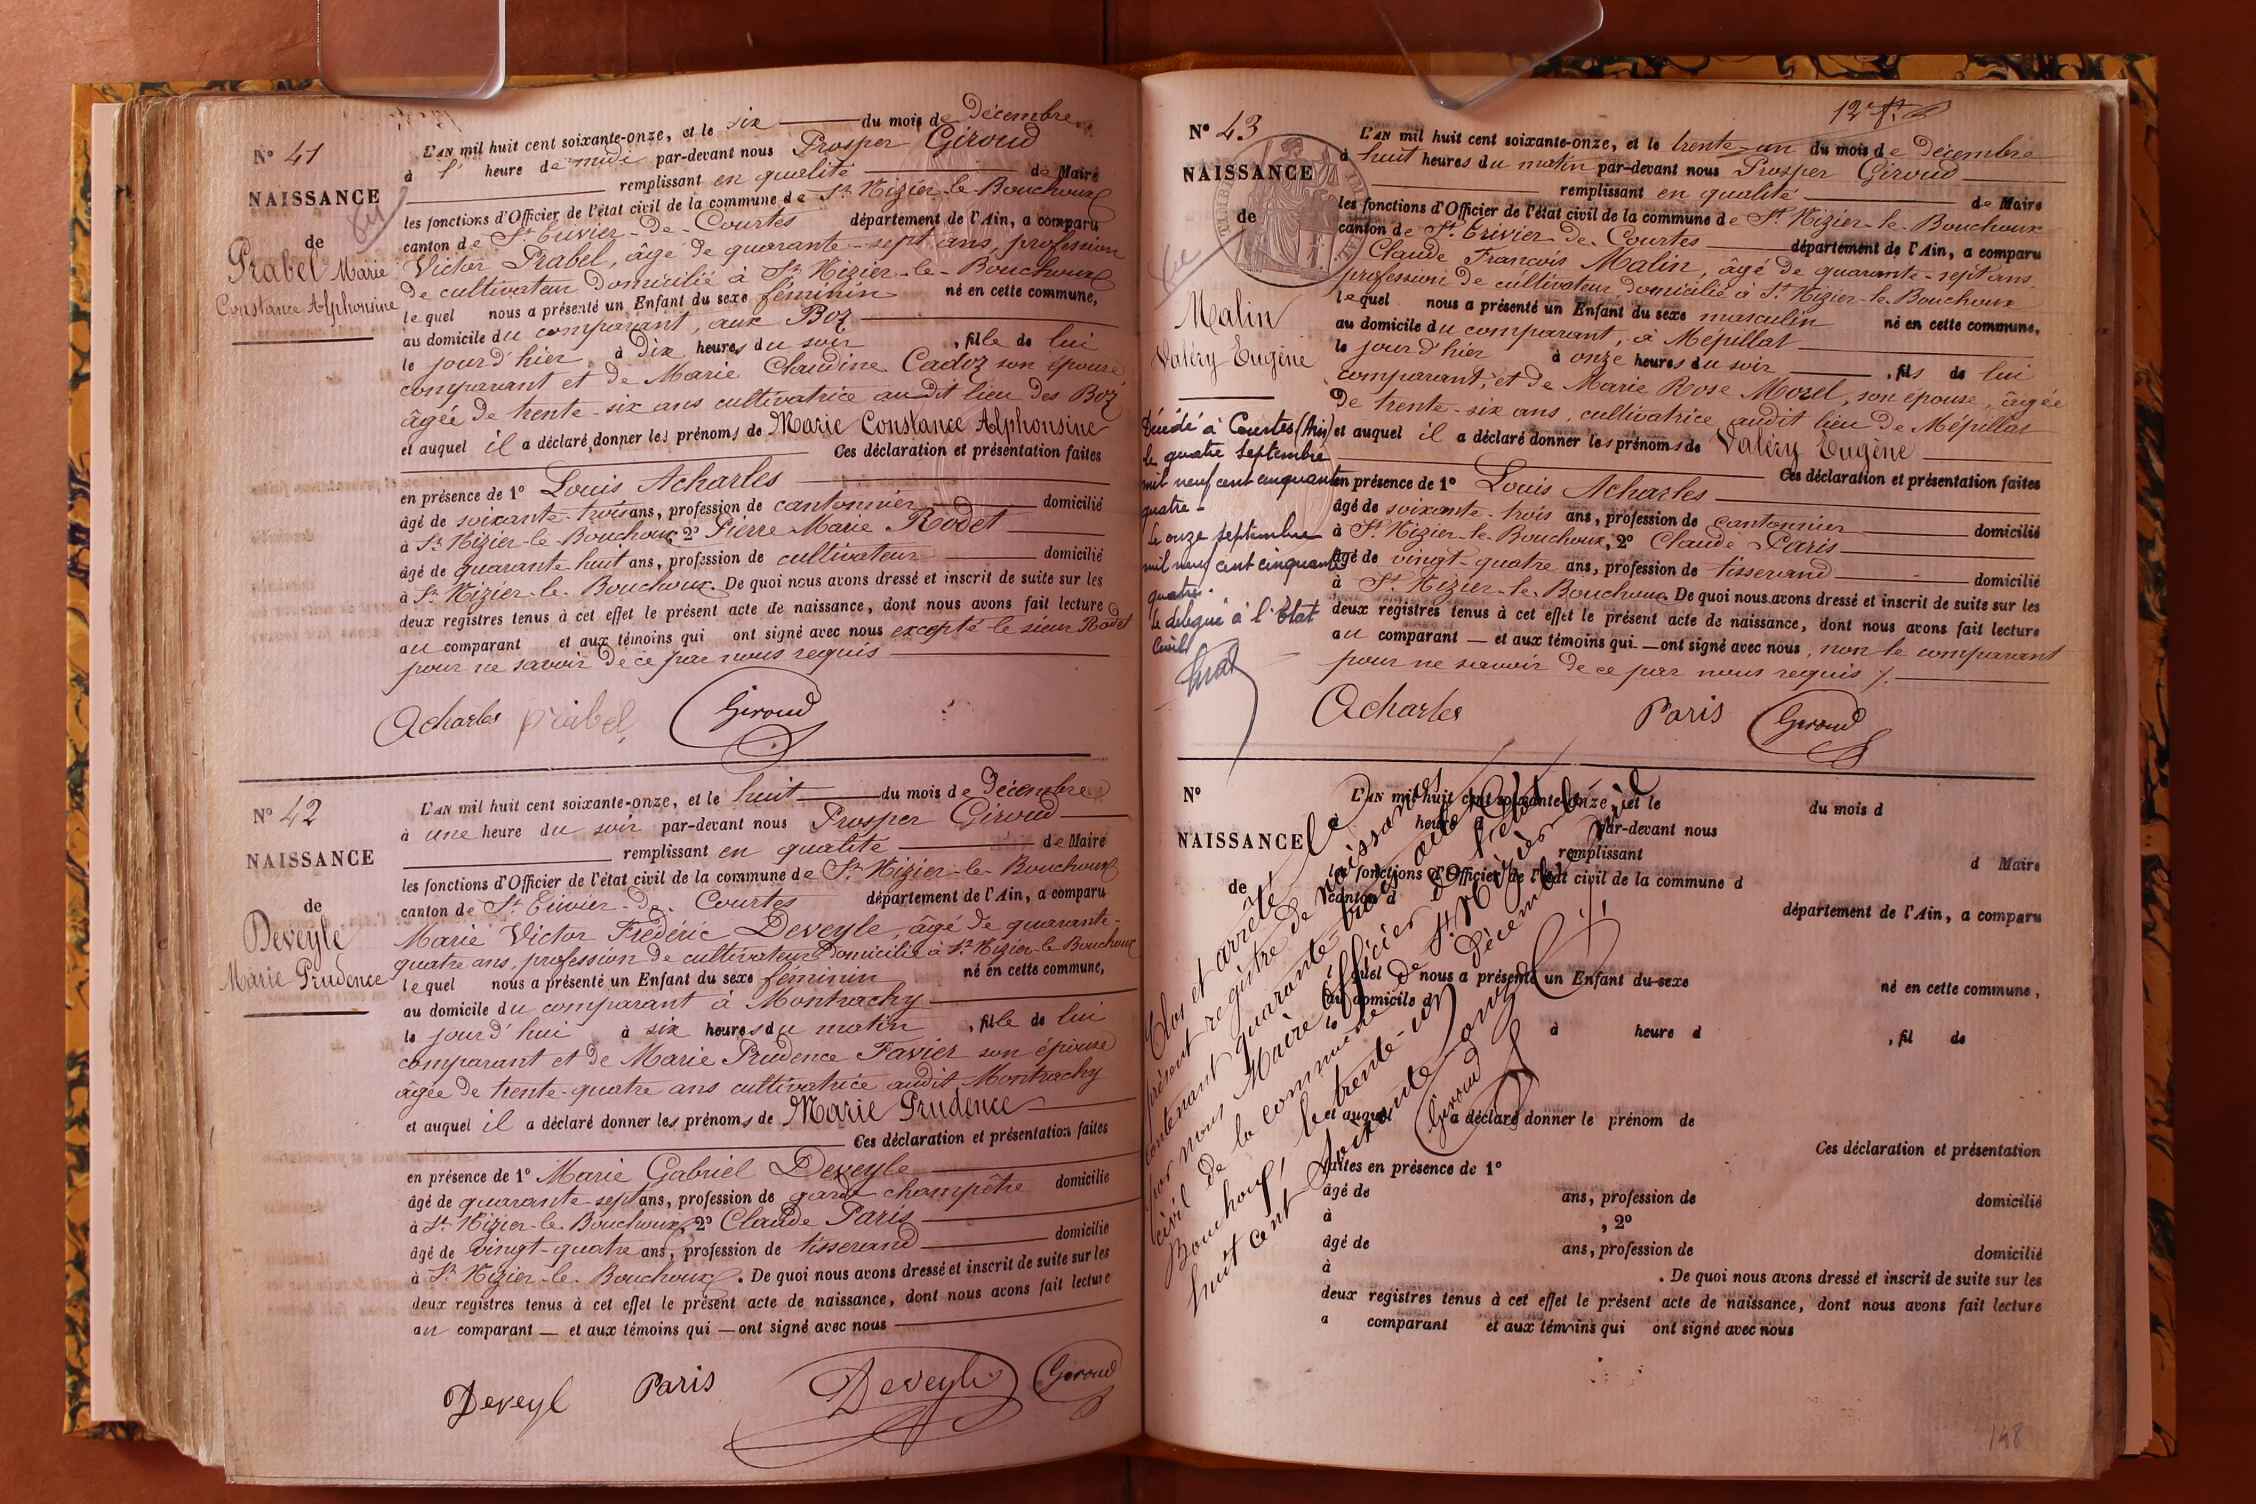 N° 41
NAISSANCE
de
Prabel Marie
Constance Alphonsine
L'AN mil huit cent soixante-onze, et le six du mois de Décembre
à l' heure de midi par-devant nous Prosper Giroud
remplissant en qualité de Maire
les fonctions d'Officier de l'état civil de la commune de St Nizier-le-Bouchoux
canton de St Trivier-de-Courtes département de l'Ain, a comparu
Victor Prabel, âgé de quarante-sept ans, profession
de cultivateur domicilié à St Nizier-le-Bouchoux
lequel nous a présenté un Enfant du sexe féminin né en cette commune,
au domicile du comparant, aux Boz
le jour d'hier à dix heures du soir, fille de lui
comparant et de Marie Claudine Cadoz son épouse
âgée de trente-six ans cultivatrice audit lieu des Boz
et auquel il a déclaré donner les prénoms de Marie Constance Alphonsine
Ces déclaration et présentation faites
en présence de 1° Louis Acharles
âgé de soixante-trois ans, profession de cantonnier domicilié
à St Nizier-le-Bouchoux, 2° Pierre Marie Rodet
âgé de quarante huit ans, profession de cultivateur domicilié
à St Nizier-le-Bouchoux. De quoi nous avons dressé et inscrit de suite sur les
deux registres tenus à cet effet le présent acte de naissance, dont nous avons fait lecture
au comparant et aux témoins qui ont signé avec nous excepté le sieur Rodet
pour ne savoir de ce par nous requis
Acharles Prabel Giroud
N° 42
NAISSANCE
de
Deveyle
Marie Prudence
L'AN mil huit cent soixante-onze, et le huit du mois de Décembre
à une heure du soir par-devant nous Prosper Giroud
remplissant en qualité de Maire
les fonctions d'Officier de l'état civil de la commune de St Nizier-le-Bouchoux
canton de St Trivier-de-Courtes département de l'Ain, a comparu
Marie Victor Frédéric Deveyle, âgé de quarante-
quatre ans, profession de cultivateur domicilié à St Nizier-le-Bouchoux
lequel nous a présenté un Enfant du sexe féminin né en cette commune,
au domicile du comparant à Montrachy
le jour d'hui à six heures du matin, fille de lui
comparant et de Marie Prudence Favier son épouse
âgée de trente-quatre ans cultivatrice audit Montrachy
et auquel il a déclaré donner les prénoms de Marie Prudence
Ces déclaration et présentation faites
en présence de 1° Marie Gabriel Deveyle
âgé de quarante-sept ans, profession de garde champêtre domicilié
à St Nizier-le-Bouchoux, 2° Claude Paris
âgé de vingt-quatre ans, profession de tisserand domicilié
à St Nizier-le-Bouchoux. De quoi nous avons dressé et inscrit de suite sur les
deux registres tenus à cet effet le présent acte de naissance, dont nous avons fait lecture
au comparant — et aux témoins qui — ont signé avec nous
Deveyl Paris Deveyle Giroud
N° 43
NAISSANCE
de
Malin
Valéry Eugène
Décédé à Courtes (Ain)
le quatre septembre
mil neuf cent cinquante
quatre.
Le onze septembre
mil neuf cent cinquante
quatre.
Le délégué à l'Etat
Civil
L'AN mil huit cent soixante-onze, et le trente-un du mois de décembre
à huit heures du matin par-devant nous Prosper Giroud
remplissant en qualité de Maire
les fonctions d'Officier de l'état civil de la commune de St Nizier-le-Bouchoux
canton de St Trivier-de-Courtes département de l'Ain, a comparu
Claude François Malin, âgé de quarante-sept ans
profession de cultivateur domicilié à St Nizier-le-Bouchoux
lequel nous a présenté un Enfant du sexe masculin né en cette commune,
au domicile du comparant, à Mépillat
le jour d'hier à onze heures du soir, fils de lui
comparant, et de Marie Rose Morel, son épouse, âgée
de trente-six ans, cultivatrice audit lieu de Mépillat
et auquel il a déclaré donner les prénoms de Valéry Eugène
Ces déclaration et présentation faites
en présence de 1° Louis Acharles
âgé de soixante-trois ans, profession de cantonnier domicilié
à St Nizier-le-Bouchoux, 2° Claude Paris
âgé de vingt-quatre ans, profession de tisserand domicilié
à St Nizier-le-Bouchoux. De quoi nous avons dressé et inscrit de suite sur les
deux registres tenus à cet effet le présent acte de naissance, dont nous avons fait lecture
au comparant — et aux témoins qui — ont signé avec nous, non le comparant
pour ne savoir de ce par nous requis
Acharles Paris Giroud
N°
NAISSANCE
de
L'AN mil huit cent soixante-onze, et le du mois d
à heure d par-devant nous
remplissant d Maire
les fonctions d'Officier de l'état civil de la commune d
canton d département de l'Ain, a comparu
l quel nous a présenté un Enfant du sexe né en cette commune,
au domicile d
le à heure d , fil de
et auquel a déclaré donner le prénom de
Ces déclaration et présentation
faites en présence de 1°
âgé de ans, profession de domicilié
à , 2°
âgé de ans, profession de domicilié
à . De quoi nous avons dressé et inscrit de suite sur les
deux registres tenus à cet effet le présent acte de naissance, dont nous avons fait lecture
a comparant et aux témoins qui ont signé avec nous
Clos et arrêté, le
présent registre de naissances
contenant quarante-trois actes
par nous Maire officier de l'état
civil de la commune de St Nizier-le-
Bouchoux, le trente-un décembre mil
huit cent soixante onze
Giroud
148